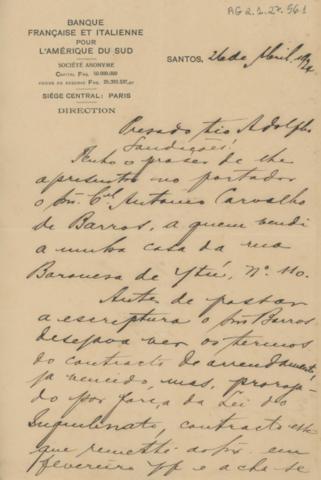 AG 2.1.27.961
BANQUE
FRANÇAISE ET ITALIENNE
POUR
L'AMÉRIQUE DU SUD
SOCIÉTÉ ANONYME
CAPITAL FRS. 50.000.000
SIÈGE CENTRAL: PARIS
DIRECTION
SANTOS, 26 de Abril, 1924
Presado tio Adolpho
Saudações!
Tenho o praser de lhe
apresentar no portador
o Snr. Cel. Antonio Carvalho
de Barros, a quem vendi
a minha casa da rua
Baronesa de Ytú, Nº. 110.
Antes de passar
a escriptura o Snr. Barros
desejava ver os termos
do contracto de arrendamento,
já vencido, mas, proroga-
do por força da Lei do
Inquilinato, contracto
que remetti em
fevereiro pp e acha-se